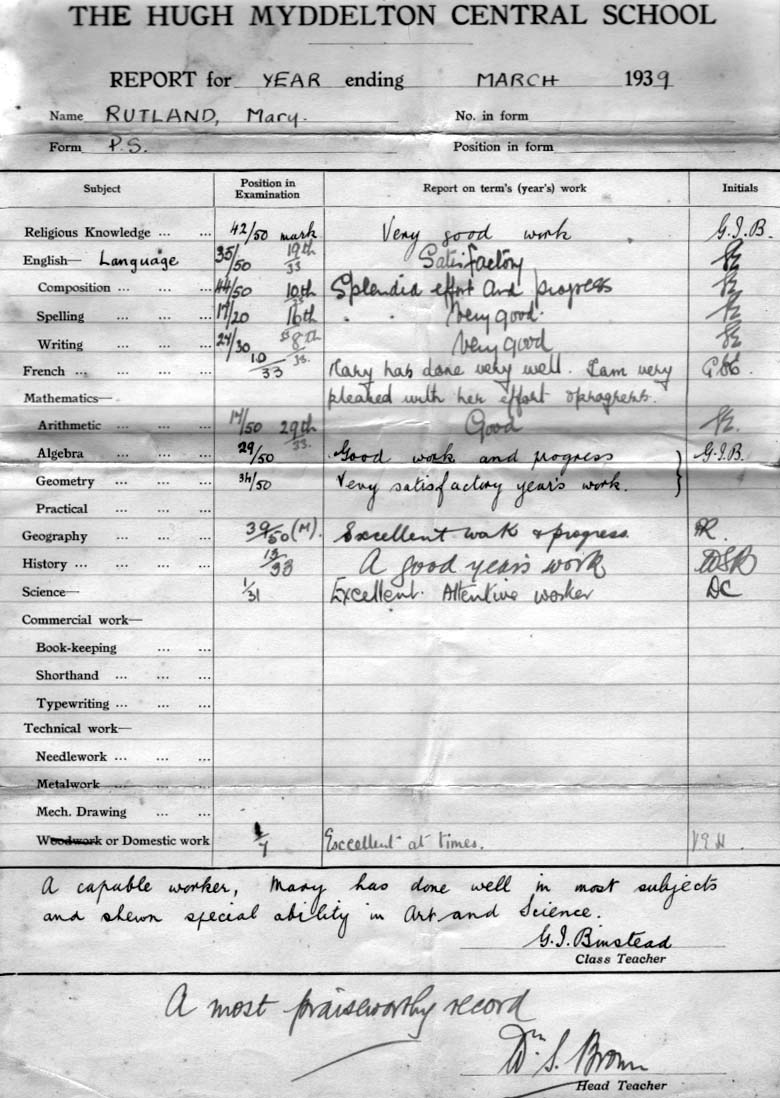 THE HUGH MYDDELTON CENTRAL SCHOOL
REPORT for YEAR ending MARCH 1939
Name RUTLAND, Mary. No. in form
Form P.S. Position in form
Subject Position in Examination Report on term's (year's) work Initials
Religious Knowledge ... ... 42/50 mark Very good work G.I.B.
English— Language 35/50 19th/33 Satisfactory
Composition ... ... 44/50 10th/33 Splendid effort and progress
Spelling ... ... 17/20 16th " " Very good.
Writing ... ... 24/30 8th/33. Very good
French ... ... ... 10/33 Mary has done very well. I am very
Mathematics— pleased with her effort & progress.
Arithmetic ... ... /50 29th/33. Good
Algebra ... ... 29/50 Good work and progress G.I.B.
Geometry ... ... 34/50 Very satisfactory year's work.
Practical ... ...
Geography ... ... 39/50 (M). Excellent work & progress.
History ... ... ... 13/33 A good year's work WSB
Science— 1/31 Excellent. Attentive worker DC
Commercial work—
Book-keeping ... ...
Shorthand ... ...
Typewriting ... ...
Technical work—
Needlework ... ...
Metalwork ... ...
Mech. Drawing ... ...
Woodwork or Domestic work /7 Excellent at times.
A capable worker, Mary has done well in most subjects
and shewn special ability in Art and Science.
G.I. Binstead
Class Teacher
A most praiseworthy record
Wm S. Brown
Head Teacher